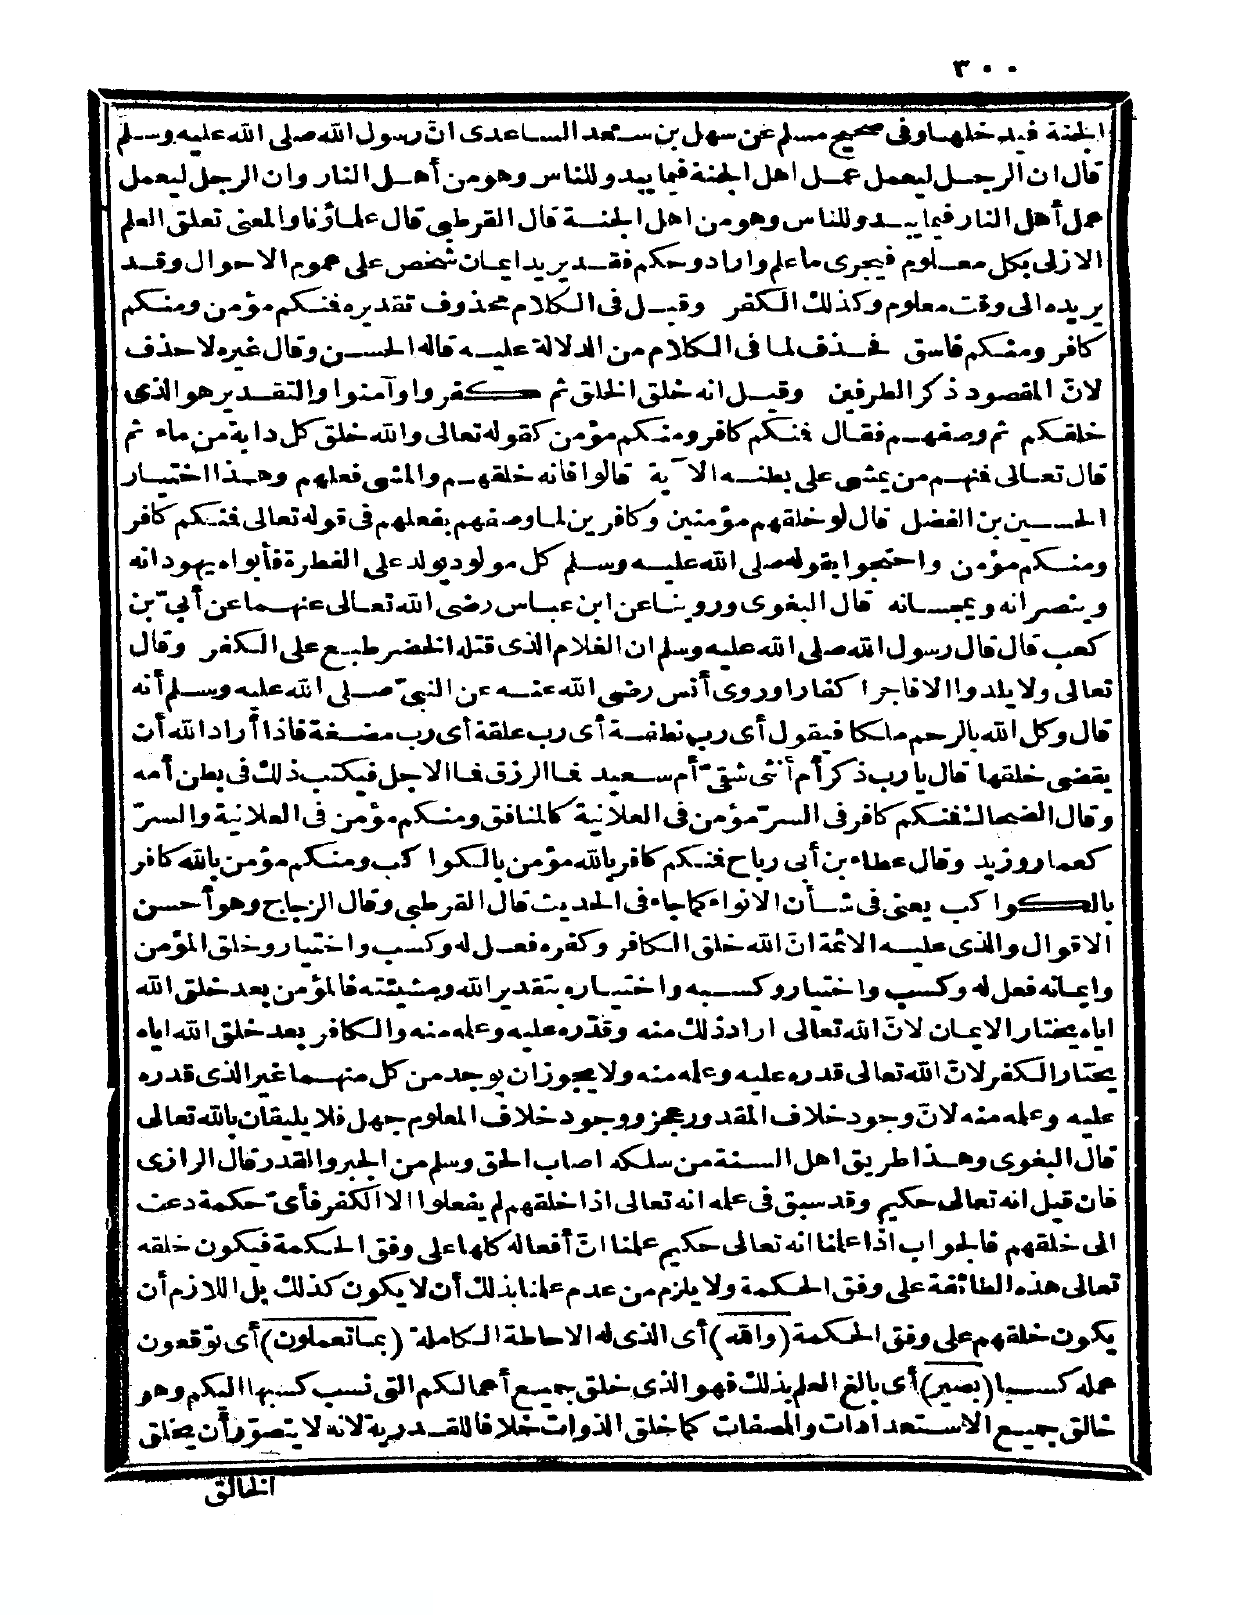 ٣٠٠
الجنة فيدخلها وفى صحيح مسلم عن سهل بن سعد الساعدى انّ رسول الله صلى الله عليه وسلم
قال ان الرجل ليعمل عمل اهل الجنة فيما يبدو للناس وهو من أهل النار وان الرجل ليعمل
عمل أهل النار فيما يبدو للناس وهو من اهل الجنة قال القرطبى قال علماؤنا والمعنى تعلق العلم
الازلى بكل معلوم فيجرى ما علم وأراد وحكم فقد يريد ايمان شخص على عموم الاحوال وقد
يريده الى وقت معلوم وكذلك الكفر وقيل فى الكلام محذوف تقديره فمنكم مؤمن ومنكم
كافر ومنكم فاسق فحذف لما فى الكلام من الدلالة عليه قاله الحسن وقال غيره لا حذف
لانّ المقصود ذكر الطرفين وقيل انه خلق الخلق ثم كفروا وآمنوا والتقدير هو الذى
خلقكم ثم وصفهم فقال فمنكم كافر ومنكم مؤمن كقوله تعالى والله خلق كل دابة من ماء ثم
قال تعالى فمنهم من يمشى على بطنه الآية قالوا فانه خلقهم والمشى فعلهم وهذا اختيار
الحسين بن الفضل قال لو خلقهم مؤمنين وكافرين لما وصفهم بفعلهم فى قوله تعالى فمنكم كافر
ومنكم مؤمن واحتجوا بقوله صلى الله عليه وسلم كل مولود يولد على الفطرة فأبواه يهودانه
وينصرانه ويمجسانه قال البغوى وروينا عن ابن عباس رضى الله تعالى عنهما عن أبىّ بن
كعب قال قال رسول الله صلى الله عليه وسلم ان الغلام الذى قتله الخضر طبع على الكفر وقال
تعالى ولا يلدوا الا فاجرا كفارا وروى أنس رضى الله عنه عن النبىّ صلى الله عليه وسلم أنه
قال وكل الله بالرحم ملكا فيقول أى رب نطفة أى رب علقة أى رب مضغة فاذا أراد الله أن
يقضى خلقها قال يا رب ذكر أم أنثى شقىّ أم سعيد فما الرزق فما الاجل فيكتب ذلك فى بطن أمه
وقال الضحاك فمنكم كافر فى السرّ مؤمن فى العلانية كالمنافق ومنكم مؤمن فى العلانية والسرّ
كعمار وزيد وقال عطاء بن أبى رباح فمنكم كافر بالله مؤمن بالكواكب ومنكم مؤمن بالله كافر
بالكواكب يعنى فى شأن الانواء كما جاء فى الحديث قال القرطبى وقال الزجاج وهو أحسن
الاقوال والذى عليه الائمة انّ الله خلق الكافر وكفره فعل له وكسب واختيار وخلق المؤمن
وايمانه فعل له وكسب واختيار وكسبه واختياره بتقدير الله ومشيئته فالمؤمن بعد خلق الله
اياه يختار الايمان لانّ الله تعالى اراد ذلك منه وقدّره عليه وعلمه منه والكافر بعد خلق الله اياه
يختار الكفر لانّ الله تعالى قدره عليه وعلمه منه ولا يجوز ان يوجد من كل منهما غير الذى قدره
عليه وعلمه منه لانّ وجود خلاف المقدور عجز ووجود خلاف المعلوم جهل فلا يليقان بالله تعالى
قال البغوى وهذا طريق اهل السنة من سلكه اصاب الحق وسلم من الجبر والقدر قال الرازى
فان قيل انه تعالى حكيم وقد سبق فى علمه انه تعالى اذا خلقهم لم يفعلوا الا الكفر فأىّ حكمة دعت
الى خلقهم فالجواب اذا علمنا انه تعالى حكيم علمنا انّ أفعاله كلها على وفق الحكمة فيكون خلقه
تعالى هذه الطائفة على وفق الحكمة ولا يلزم من عدم علمنا بذلك أن لا يكون كذلك بل اللازم أن
يكون خلقهم على وفق الحكمة (والله) أى الذى له الاحاطة الكاملة (بما تعملون) أى توقعون
عمله كسبا (بصير) أى بالغ العلم بذلك فهو الذى خلق جميع أعمالكم التى نسب كسبها اليكم وهو
خالق جميع الاستعدادات والصفات كما خلق الذوات خلافا للقدرية لانه لا يتصوّر أن يخلق
الخالق